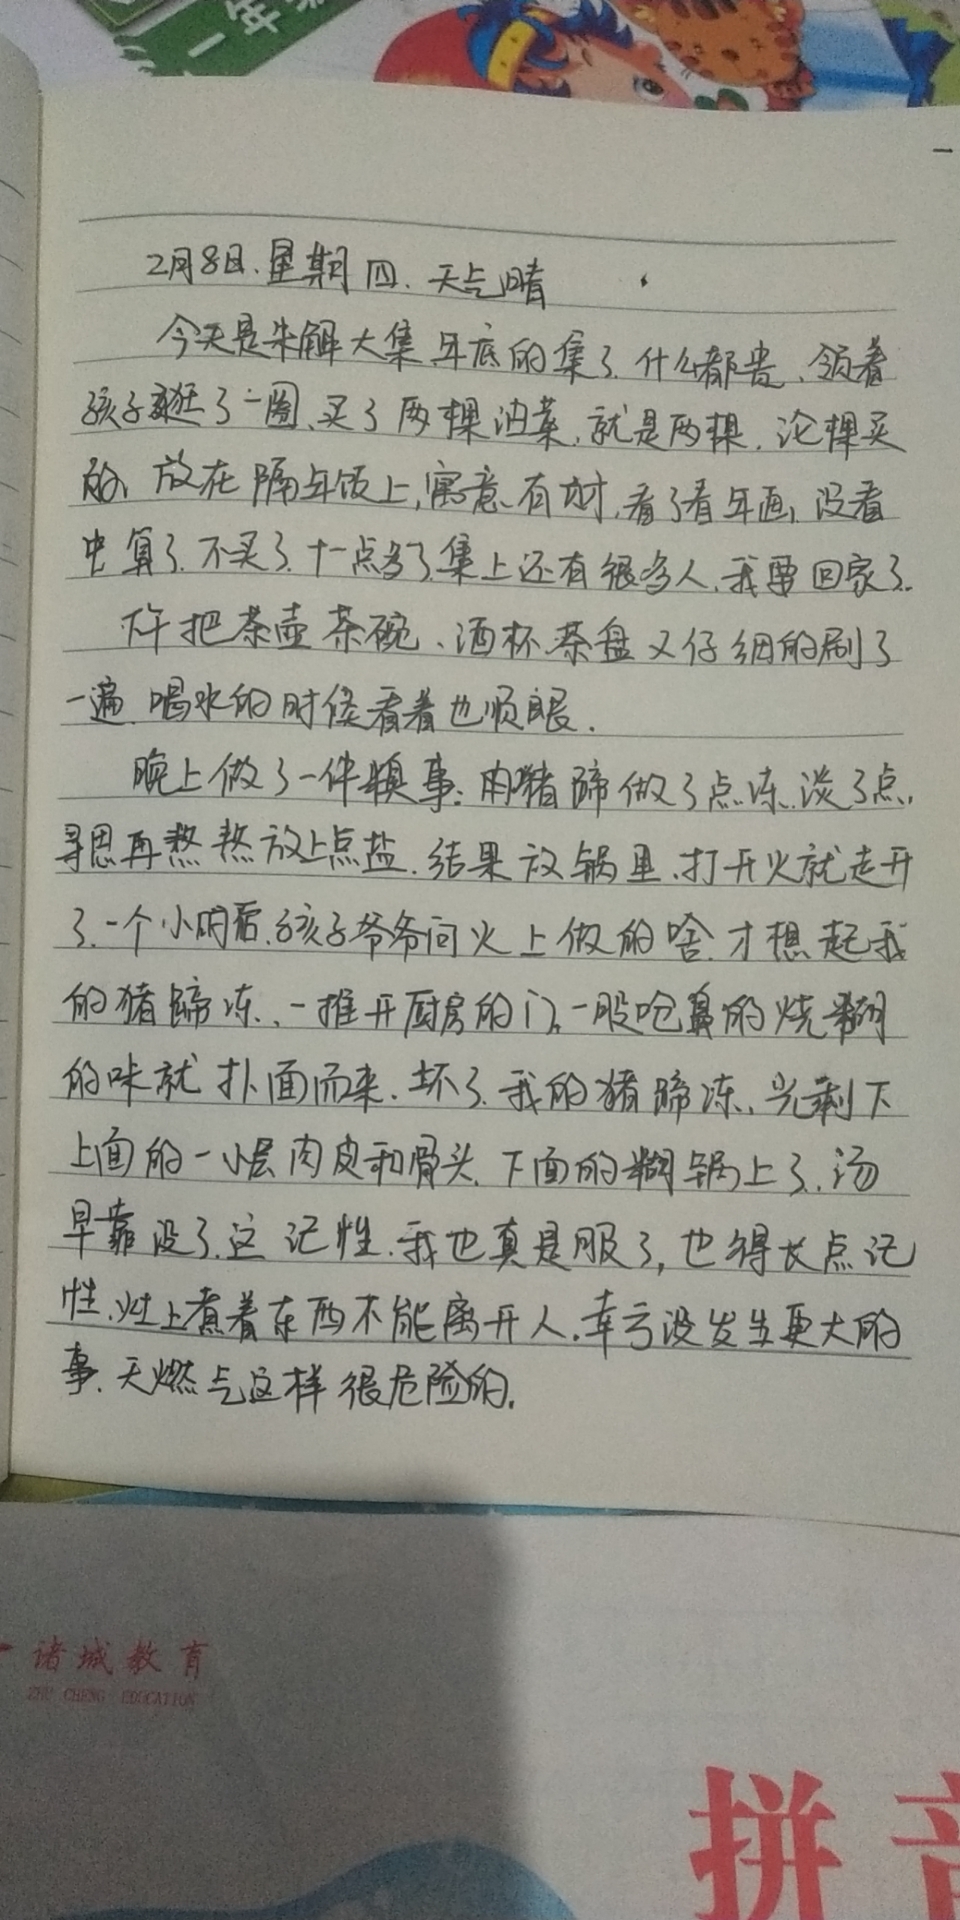 一年
2月8日.星期四.天气晴
今天是朱解大集.年底的集了.什么都贵、领着
孩子逛了一圈、买了两棵油菜,就是两棵.论棵买
的,放在隔年饭上,寓意有财,看了看年画,没看
中算了.不买了.十一点多了.集上还有很多人,我要回家了.
下午把茶壶茶碗、酒杯.茶盘又仔细的刷了
一遍.喝水的时候看着也顺眼.
晚上做了一件糗事:用猪蹄做了点冻.淡了点,
寻思再熬熬放上点盐.结果放锅里.打开火就走开
了.一个小时后.孩子爷爷问火上做的啥.才想起我
的猪蹄冻.一推开厨房的门,一股呛鼻的烧糊
的味就扑面而来.坏了.我的猪蹄冻,光剩下
上面的一小层肉皮和骨头.下面的糊锅上了.汤
早靠没了.这记性.我也真是服了,也得长点记
性.灶上煮着东西不能离开人.幸亏没发生更大的
事.天燃气这样很危险的.
诸城教育
ZHU CHENG EDUCATION
拼音